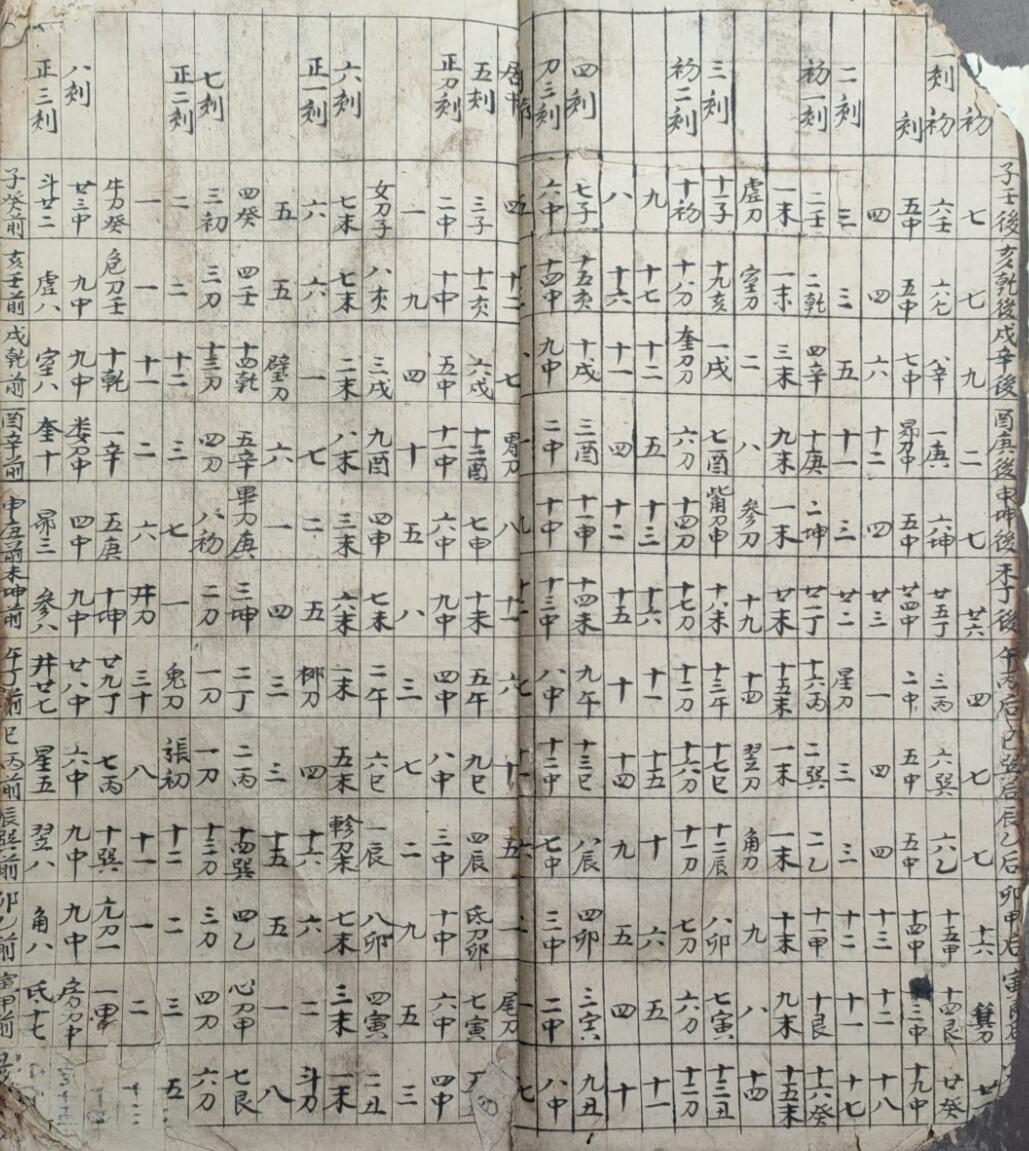 子壬後 亥乾後 戌辛後 酉庚後 申坤後 未丁後 午丙后 巳巽后 辰乙后 卯甲后
初 七 七 九 二 七 廿六 四 七 七 十六 箕刀
一刻初 六壬 六乾 八辛 一庚 六坤 廿五丁 三丙 六巽 六乙 十五甲 十四艮 廿癸
刻 五中 五中 七中 昴刀中 五中 廿四中 二中 五中 五中 十四中 十三中 十九中
四 四 六 十二 四 廿三 一 四 四 十三 十二 十八
二刻 三 三 五 十一 三 廿二 星刀 三 三 十二 十一 十七
初一刻 二壬 二乾 四辛 十庚 二坤 廿一丁 十六丙 二巽 二乙 十一甲 十艮 十六癸
一末 一末 三末 九末 一末 廿末 十五末 一末 一末 十末 九末 十五末
虚刀 室刀 二 八 參刀 十九 十四 翌刀 角刀 九 八 十四
三刻 十一子 十九亥 一戌 七酉 觜刀申 十八未 十三午 十七巳 十二辰 八卯 七寅 十三丑
初二刻 十初 十八分 奎刀刀 六刀 十四刀 十七刀 十二刀 十六刀 十一刀 七刀 六刀 十二刀
九 十七 十二 五 十三 十六 十一 十五 十 六 五 十一
八 十六 十一 四 十二 十五 十 十四 九 五 四 十
四刻 七子 十五亥 十戌 三酉 十一申 十四未 九午 十三巳 八辰 四卯 三寅 九丑
刀三刻 六中 十四中 九中 二中 十中 十三中 八中 十二中 七中 三中 二中 八中
居中 四 十二 七 胃刀 八 十一 六 十 五 一 尾刀
五刻 三子 十一亥 六戌 十二酉 七申 十未 五午 九巳 四辰 氐刀卯 七寅
正刀刻 二中 十中 五中 十一中 六中 九中 四中 八中 三中 十中 六中 四中
一 九 四 十 五 八 三 七 二 九 五 三
女刀子 八亥 三戌 九酉 四申 七未 二午 六巳 一辰 八卯 四寅 二丑
六刻 七末 七末 二末 八末 三末 六末 一末 五末 軫刀末 七末 三末 一末
正一刻 六 六 一 七 二 五 柳刀 四 十六 六 二 斗刀
五 五 壁刀 六 一 四 三 三 十五 五 一 八
四癸 四壬 十四乾 五辛 畢刀庚 三坤 二丁 二丙 十四巽 四乙 心刀甲 七艮
七刻 三初 三刀 十三刀 四刀 八初 二刀 一刀 一刀 十三刀 三刀 四刀 六刀
正二刻 二 二 十二 三 七 一 鬼刀 張初 十二 二 三 五
一 一 十一 二 六 井刀 三十 八 十一 一 二
牛刀癸 危刀壬 十乾 一辛 五庚 十坤 廿九丁 七丙 十巽 亢刀一 一甲
八刻 廿三中 九中 九中 娄刀中 四中 九中 廿八中 六中 九中 九中 房刀中
正三刻 斗廿二 虚八 室八 奎十 昴三 參八 井廿七 星五 翌八 角八 氐十七
子癸前 亥壬前 戌乾前 酉辛前 申庚前 未坤前 午丁前 巳丙前 辰巽前 卯乙前 寅甲前